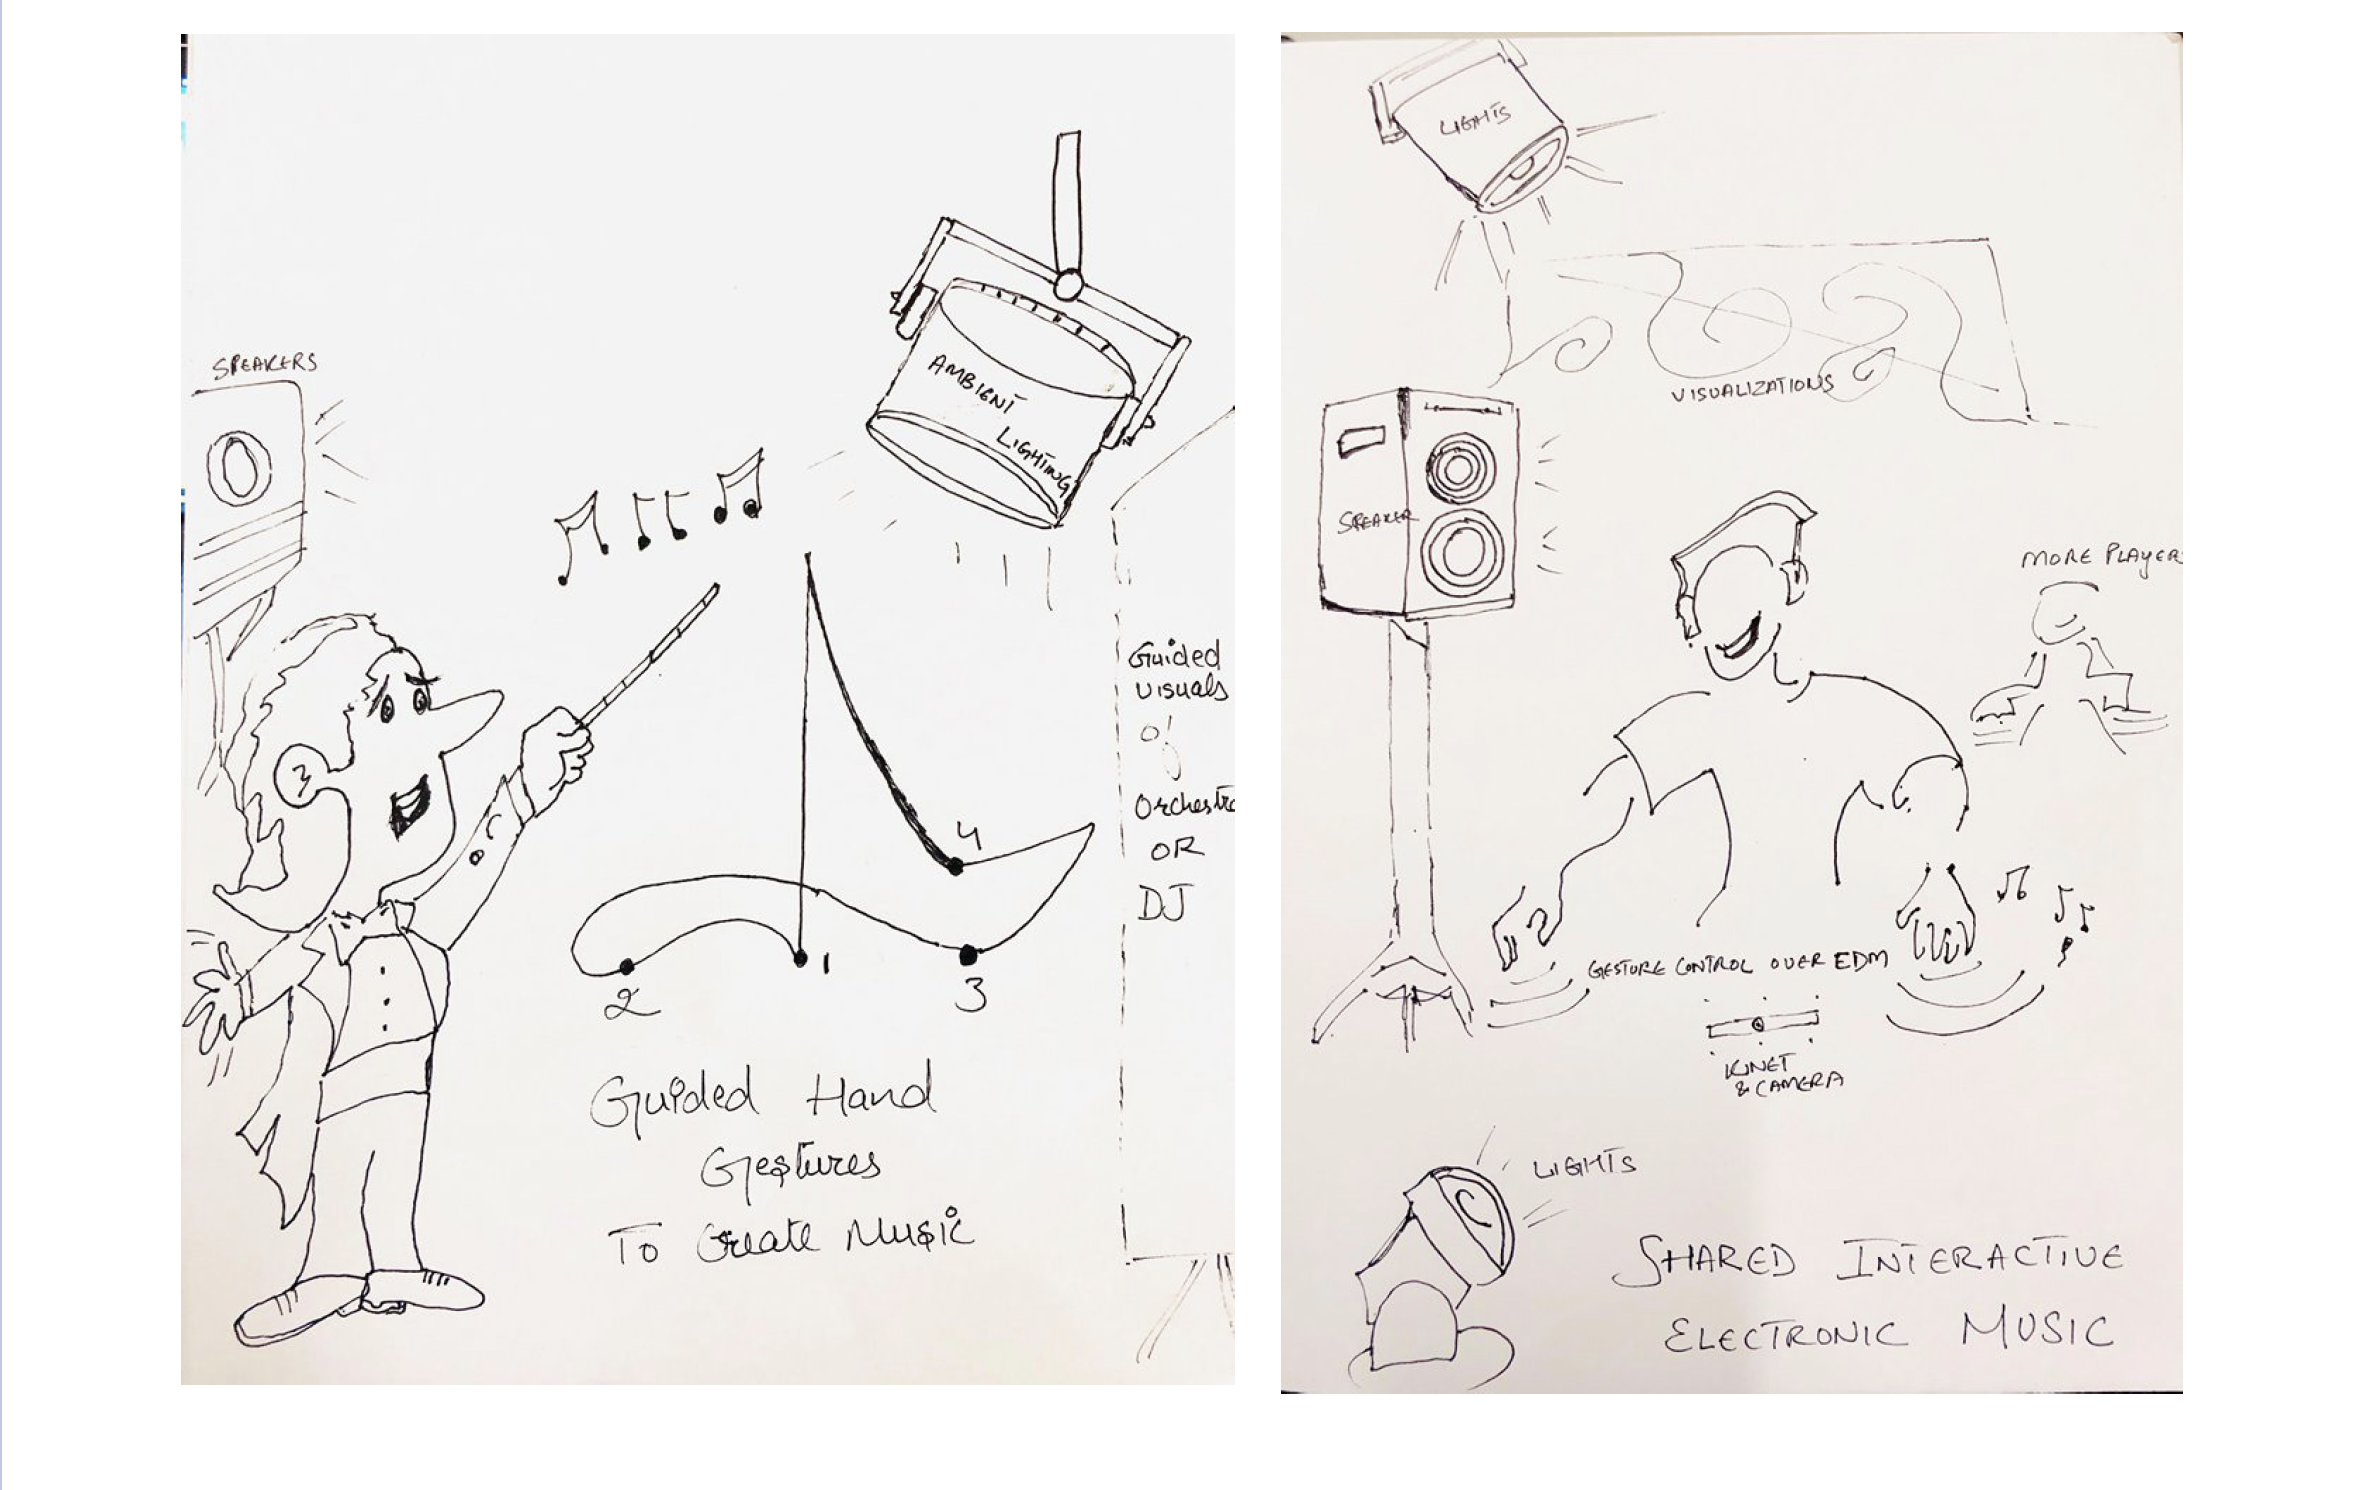 SPEAKERS
AMBIENT
LIGHTING
Guided
visuals
of
Orchestra
OR
DJ
4
1
2
3
Guided Hand
Gestures
To Create Music
LIGHTS
VISUALIZATIONS
SPEAKER
MORE PLAYER
GESTURE CONTROL OVER EDM
KINET
& CAMERA
LIGHTS
SHARED INTERACTIVE
ELECTRONIC MUSIC